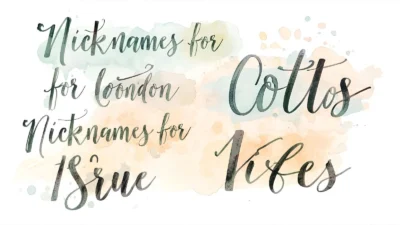 Nicknames for
for loondon
Nicknames for
Cottos
Vibes